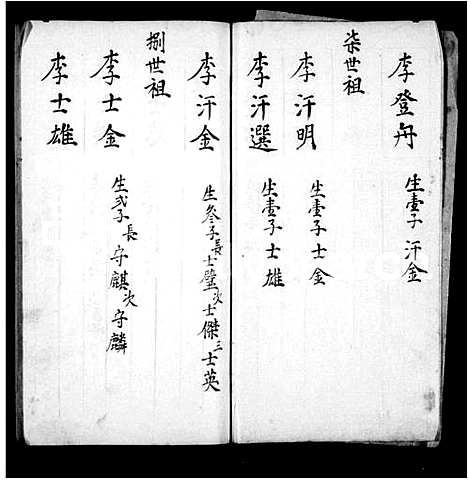 李登舟 生壹子 汗金
柒世祖
李汗明 生壹子士金
李汗選 生壹子士雄
李汗金 生叄子長士璧次士傑三士英
捌世祖
李士金 生弍子長守麒次守麟
李士雄